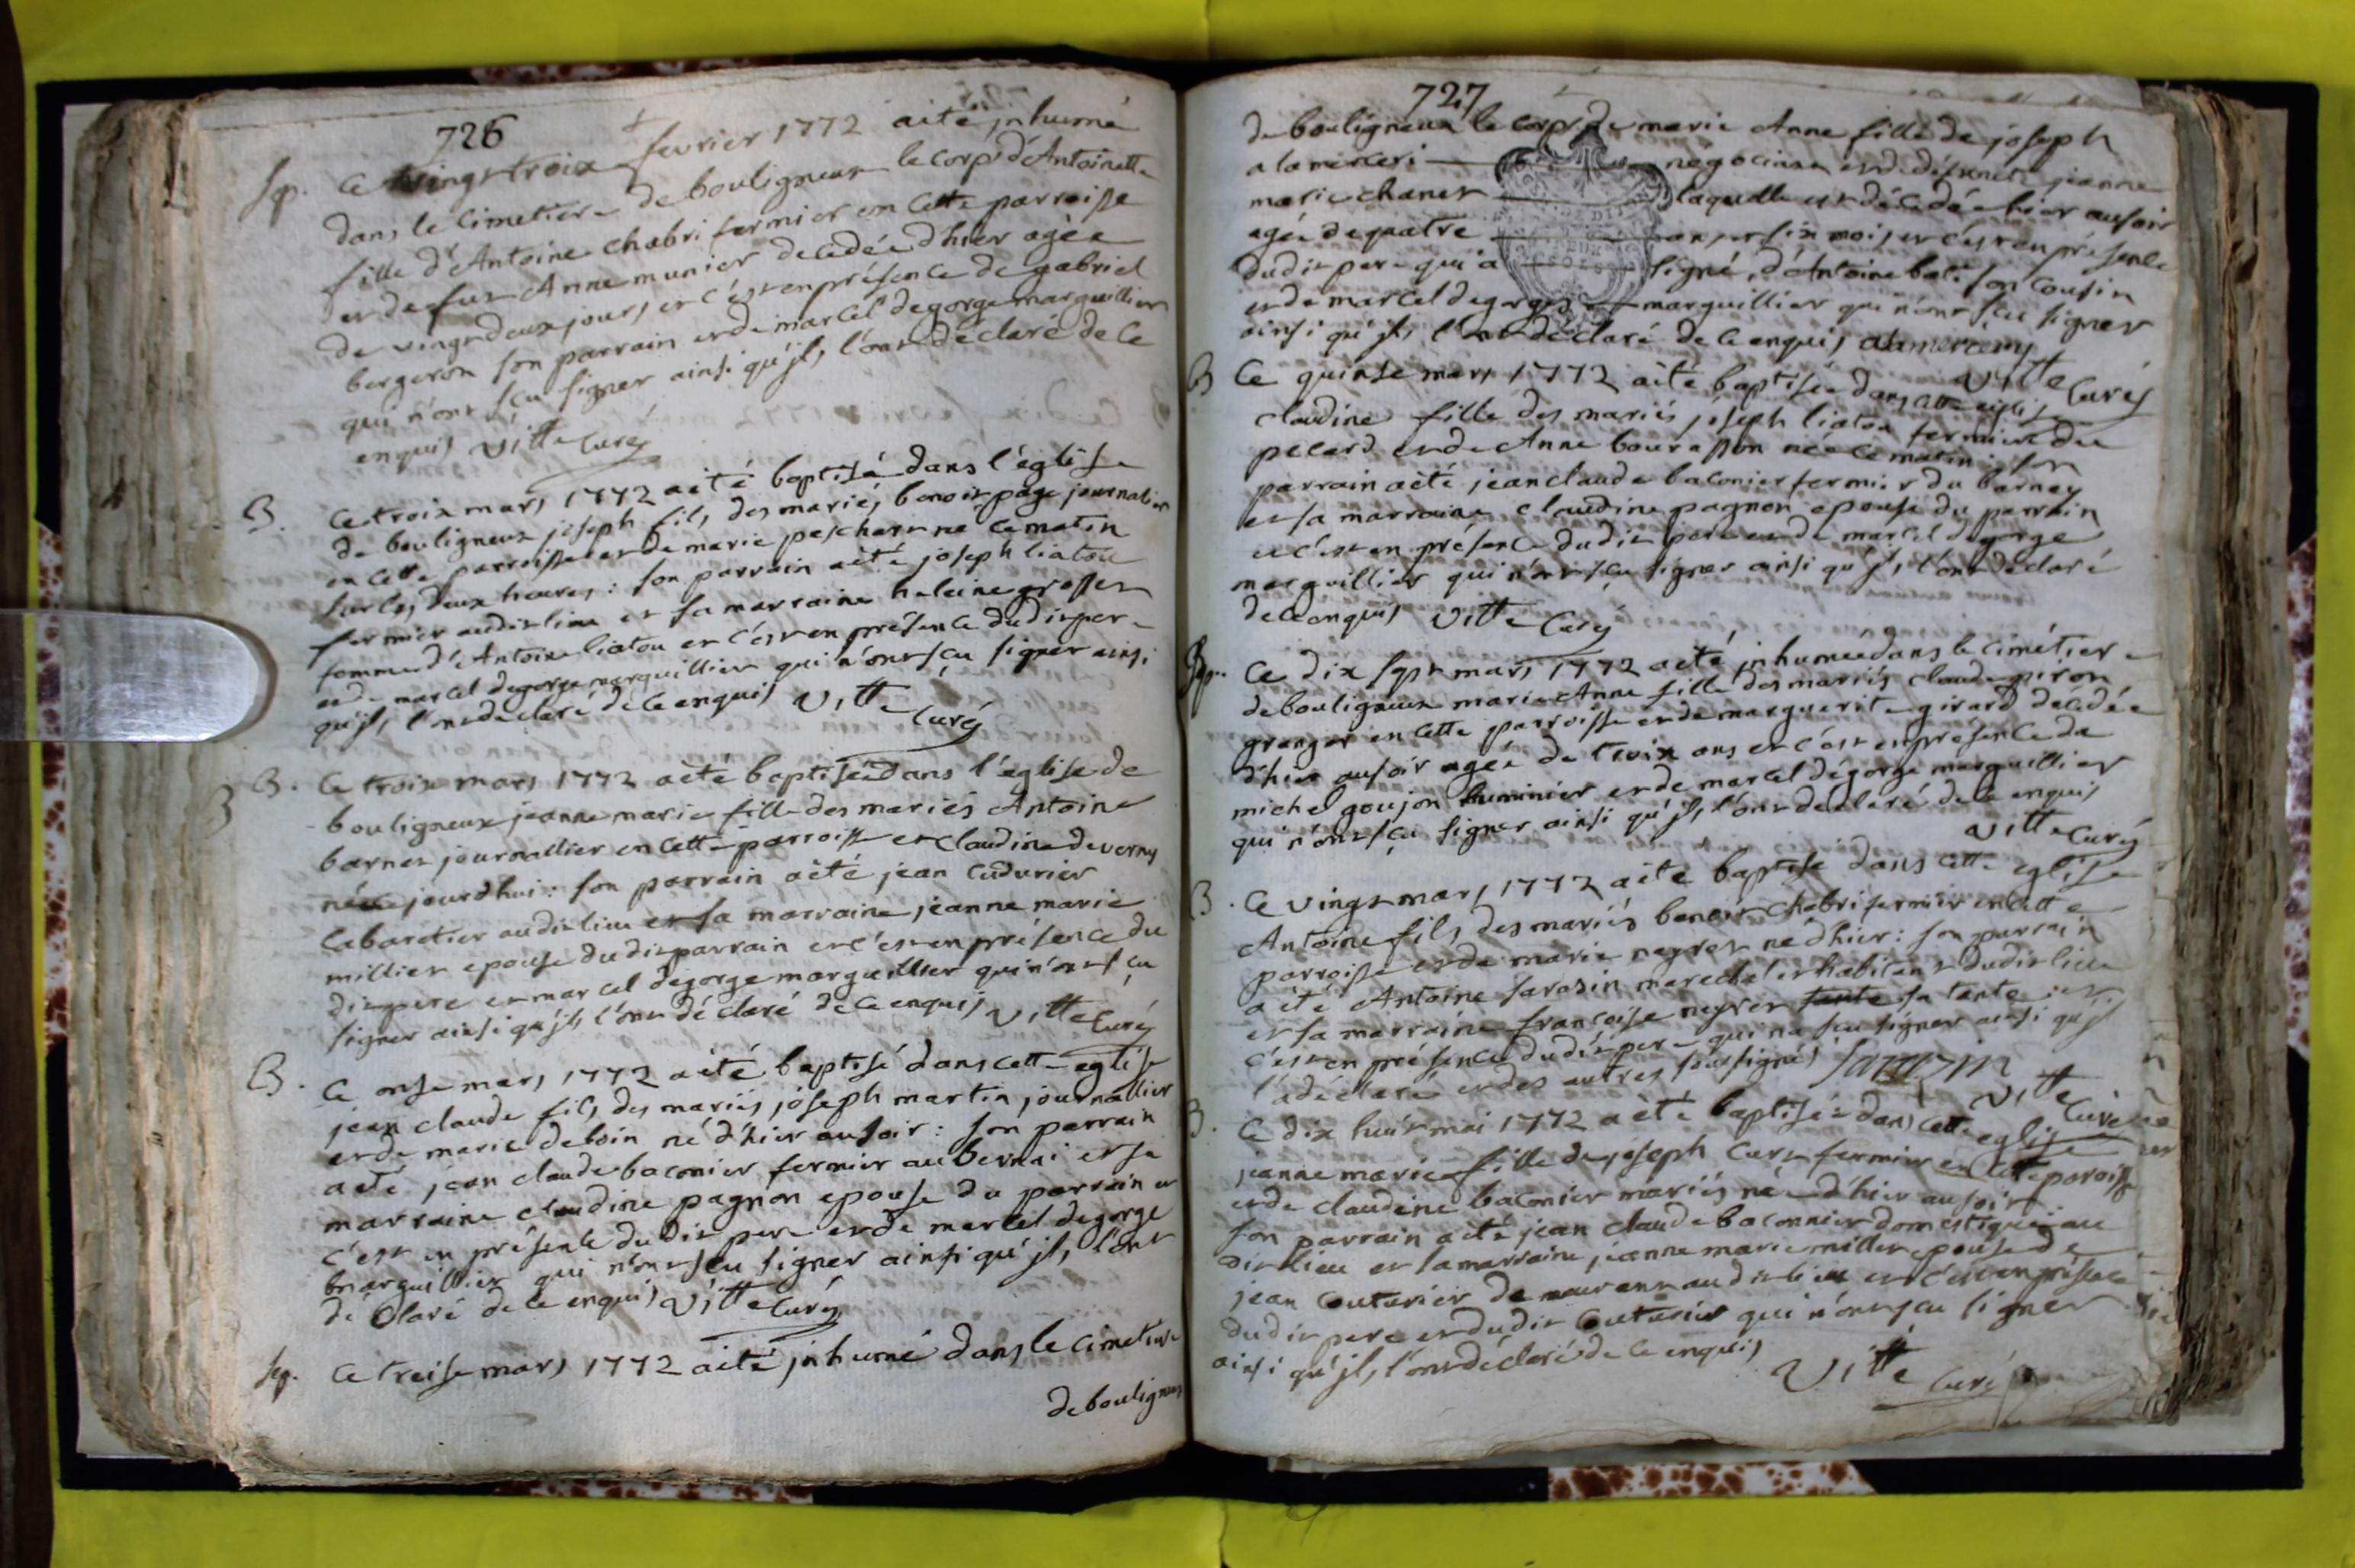 726
Sep. Ce vingt troix fevrier 1772 aité inhumé
dans le cimetiere de bouligneux le corp d'Antoinette
fille d'Antoine chabri fermier en cette parroisse
et de fut Anne munier decedée d'hier agée
de vingt deux jours et c'est en présence de gabriel
bergeron son parrain et de marcel degorge marguillier
qui n'ont sçu signer ainsi qu'jls l'ont déclaré de ce
enquis Vitte Curé
B. Ce troix mars 1772 aité baptisé dans l'église
de bouligneux joseph fils des mariés benoit page journalier
en cette parroisse et de marie pescheur né ce matin
sur les deux heures : son parrain aité joseph liatou
fermier audit lieu et sa marraine heleine grosset
femme d'Antoine liatou et c'est en présence dudit pere
et de marcel degorge marguillier qui n'ont sçu signer ainsi
qu'jls l'ont déclaré de ce enquis Vitte Curé
B. Ce troix mars 1772 aité baptisée dans l'église de
bouligneux jeanne marie fille des mariés Antoine
barnet journallier en cette parroisse et claudine deverny
née jourd'hui : son parrain aité jean cudurier
Cabaretier audit lieu et sa marraine jeanne marie
millier epouse dudit parrain et c'est en présence du
dit pere et marcel degorge marguillier qui n'ont sçu
signer ainsi qu'jls l'ont déclaré de ce enquis Vitte Curé
B. Ce onse mars 1772 aité baptisé dans cette eglise
jean claude fils des mariés joseph martin journallier
et de marie deboin né d'hier au soir : son parrain
aité jean claude baconier fermier au bernai et sa
marraine claudine pagnon epouse du parrain et
c'est en présence dudit pere et de marcel degorge
marguillier qui n'ont sçu signer ainsi qu'jls l'ont
déclaré de ce enquis Vitte Curé
Sep. Ce treise mars 1772 aité jnhumé dans le cimetiere
de bouligneux
727
de bouligneux le corp de marie Anne fille de joseph
a lamerceri négociant et de défunete jeanne
marie chanet laquelle est décédée hier au soir
agée de quatre ans et six mois et c'est en présence
dudit pere qui a signé, d'Antoine bati son cousin
et de marcel degorges marguillier qui n'ont sçu signer
ainsi qu'jls l'ont déclaré de ce enquis
Vitte Curé
B Ce quinse mars 1772 aité baptisée dans cette eglise
claudine fille des mariés joseph liatou fermier du
pecard et de Anne bourasson née ce matin : son
parrain aité jean claude baconier fermier du barnay
et sa marraine claudine pagnon epouse du parrain
et c'est en présence dudit pere et de marcel degorge
marguillier qui n'ont sçu signer ainsi qu'jls l'ont déclaré
de ce enquis Vitte Curé
Sep. Ce dix sept mars 1772 aité jnhumée dans le cimétiere
de bouligneux marie Anne fille des mariés claude piron
granger en cette parroisse et de marguerite girard décédée
d'hier au soir agée de troix ans et c'est en présence de
michel goujon luminier et de marcel dégorge marguillier
qui n'ont sçu signer ainsi qu'jls l'ont déclaré de ce enquis
Vitte Curé
B. Ce vingt mars 1772 aité baptisé dans cette eglise
Antoine fils des mariés benoit chabri fermier en cette
parroisse et de marie neyret né d'hier : son parrain
a été Antoine sarasin marechal et habitant dudit lieu
et sa marraine francoise neyret tante sa tante et
c'est en présence dudit pere qui na sçu signer ainsi qu'jl
l'a déclaré et des autres soussignés Sarrasin
Vitte Curé
B. Ce dix huit mai 1772 a été baptisée dans cette eglise
jeanne marie fille de joseph Curt fermier en cette paroisse
et de claudine baconier mariés née d'hier au soir
son parrain aité jean claude baconnier domestique au
dit lieu et sa marraine jeanne marie millet epouse de
jean Couturier de mourant au dit lieu et c'est en présence
dudit pere et dudit Couturier qui n'ont sçu signer
ainsi qu'jls l'ont déclaré de ce enquis
Vitte Curé